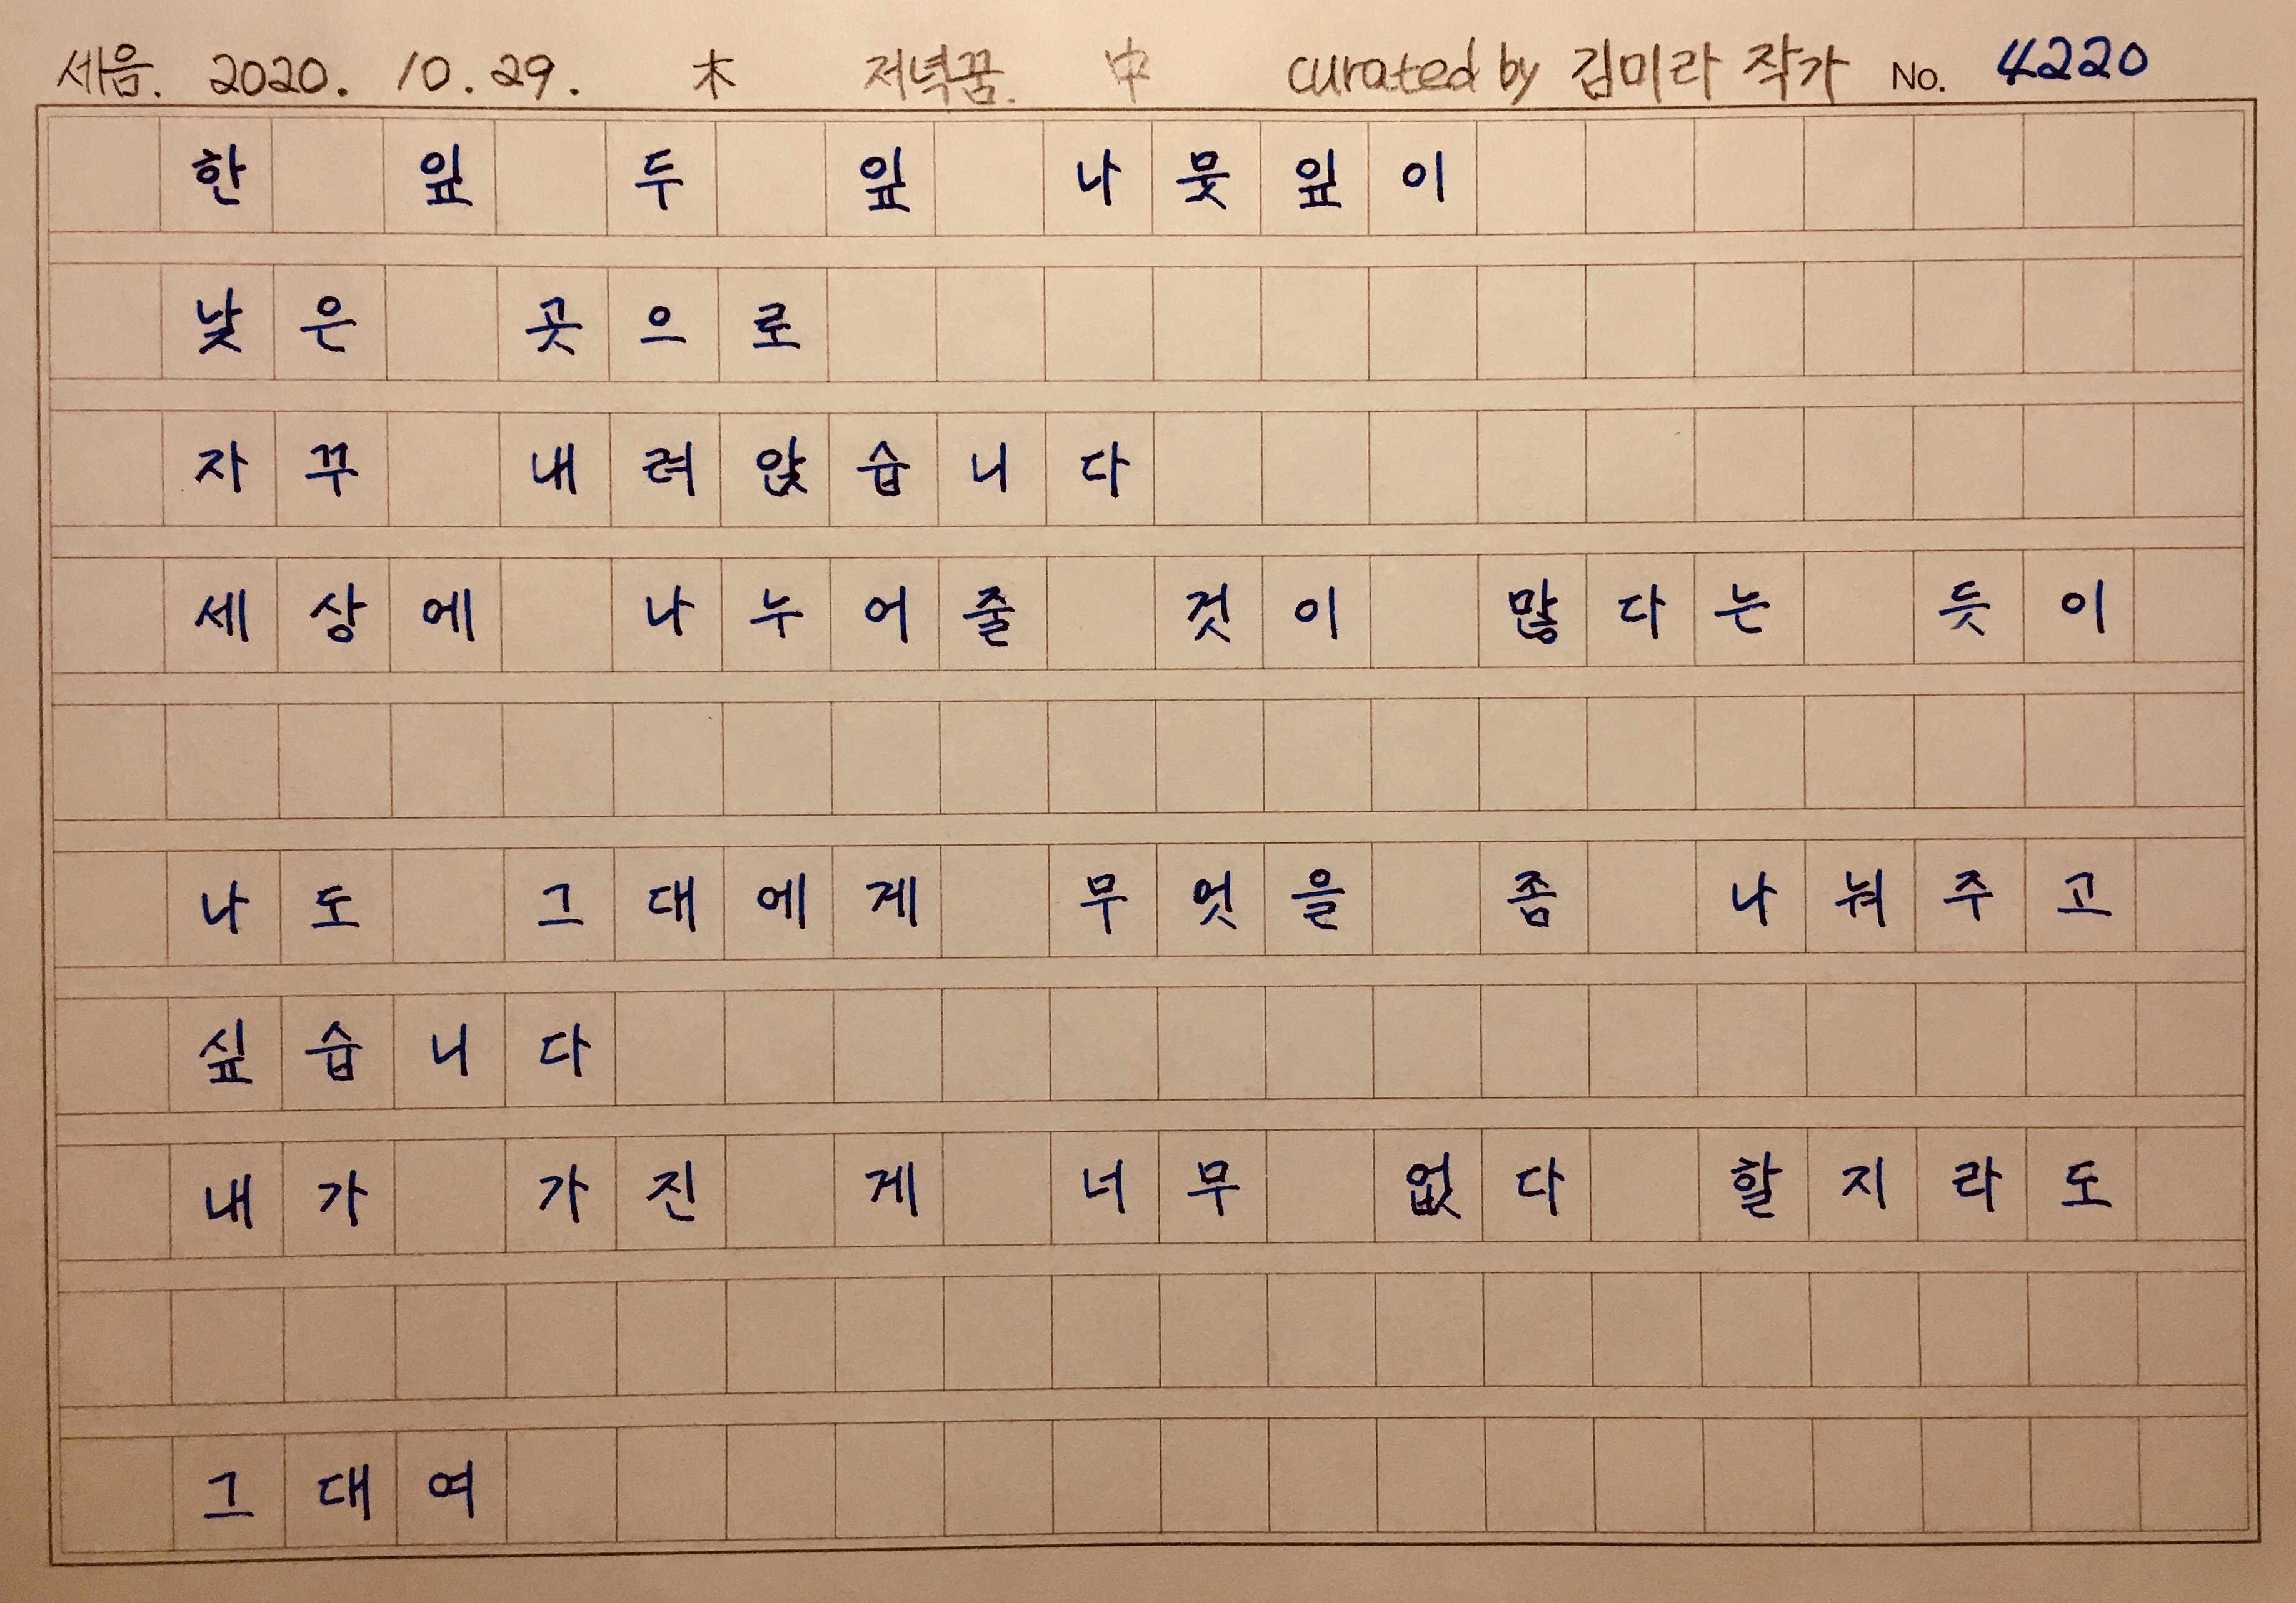 세음. 2020. 10. 29. 木 저녁꿈. 中 curated by 김미라 작가 No. 4220
한 잎 두 잎 나뭇잎이
낮은 곳으로
자꾸 내려앉습니다
세상에 나누어줄 것이 많다는 듯이
나도 그대에게 무엇을 좀 나눠주고
싶습니다
내가 가진 게 너무 없다 할지라도
그대여